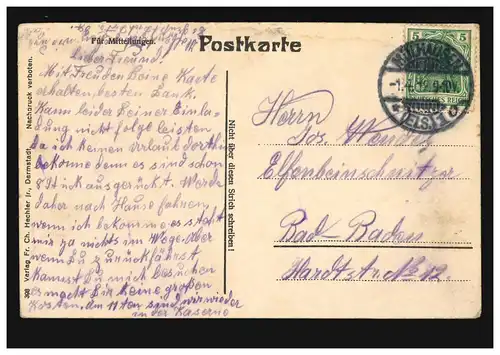 Für Mitteilungen.
Postkarte
5
MÜLHAUSEN
(ELS)
Lieber Freund!
Mit Freuden Deine Karte
erhalten besten Dank.
Kann leider Deiner Einla-
dung nicht folge leisten
da ich keinen Urlaub dorthin
bekomme denn es sind schon
8 Stück ausgerückt. Werde
daher nach Hause fahren
wenn ich bekomme es steht
mir ja nichts im Wege aber
wenn Du zurückfährst
kannst Du mich besuchen
es macht Dir keine großen
Kosten, am 11ten sind wir wieder
in der Kaserne
Nicht über diesen Strich schreiben!
309 Verlag Fr. Ch. Hechler jr., Darmstadt. Nachdruck verboten.
Herrn
Jos.
Elfenbeinschnitzer
Bad-Baden
Hardtstr No 12.